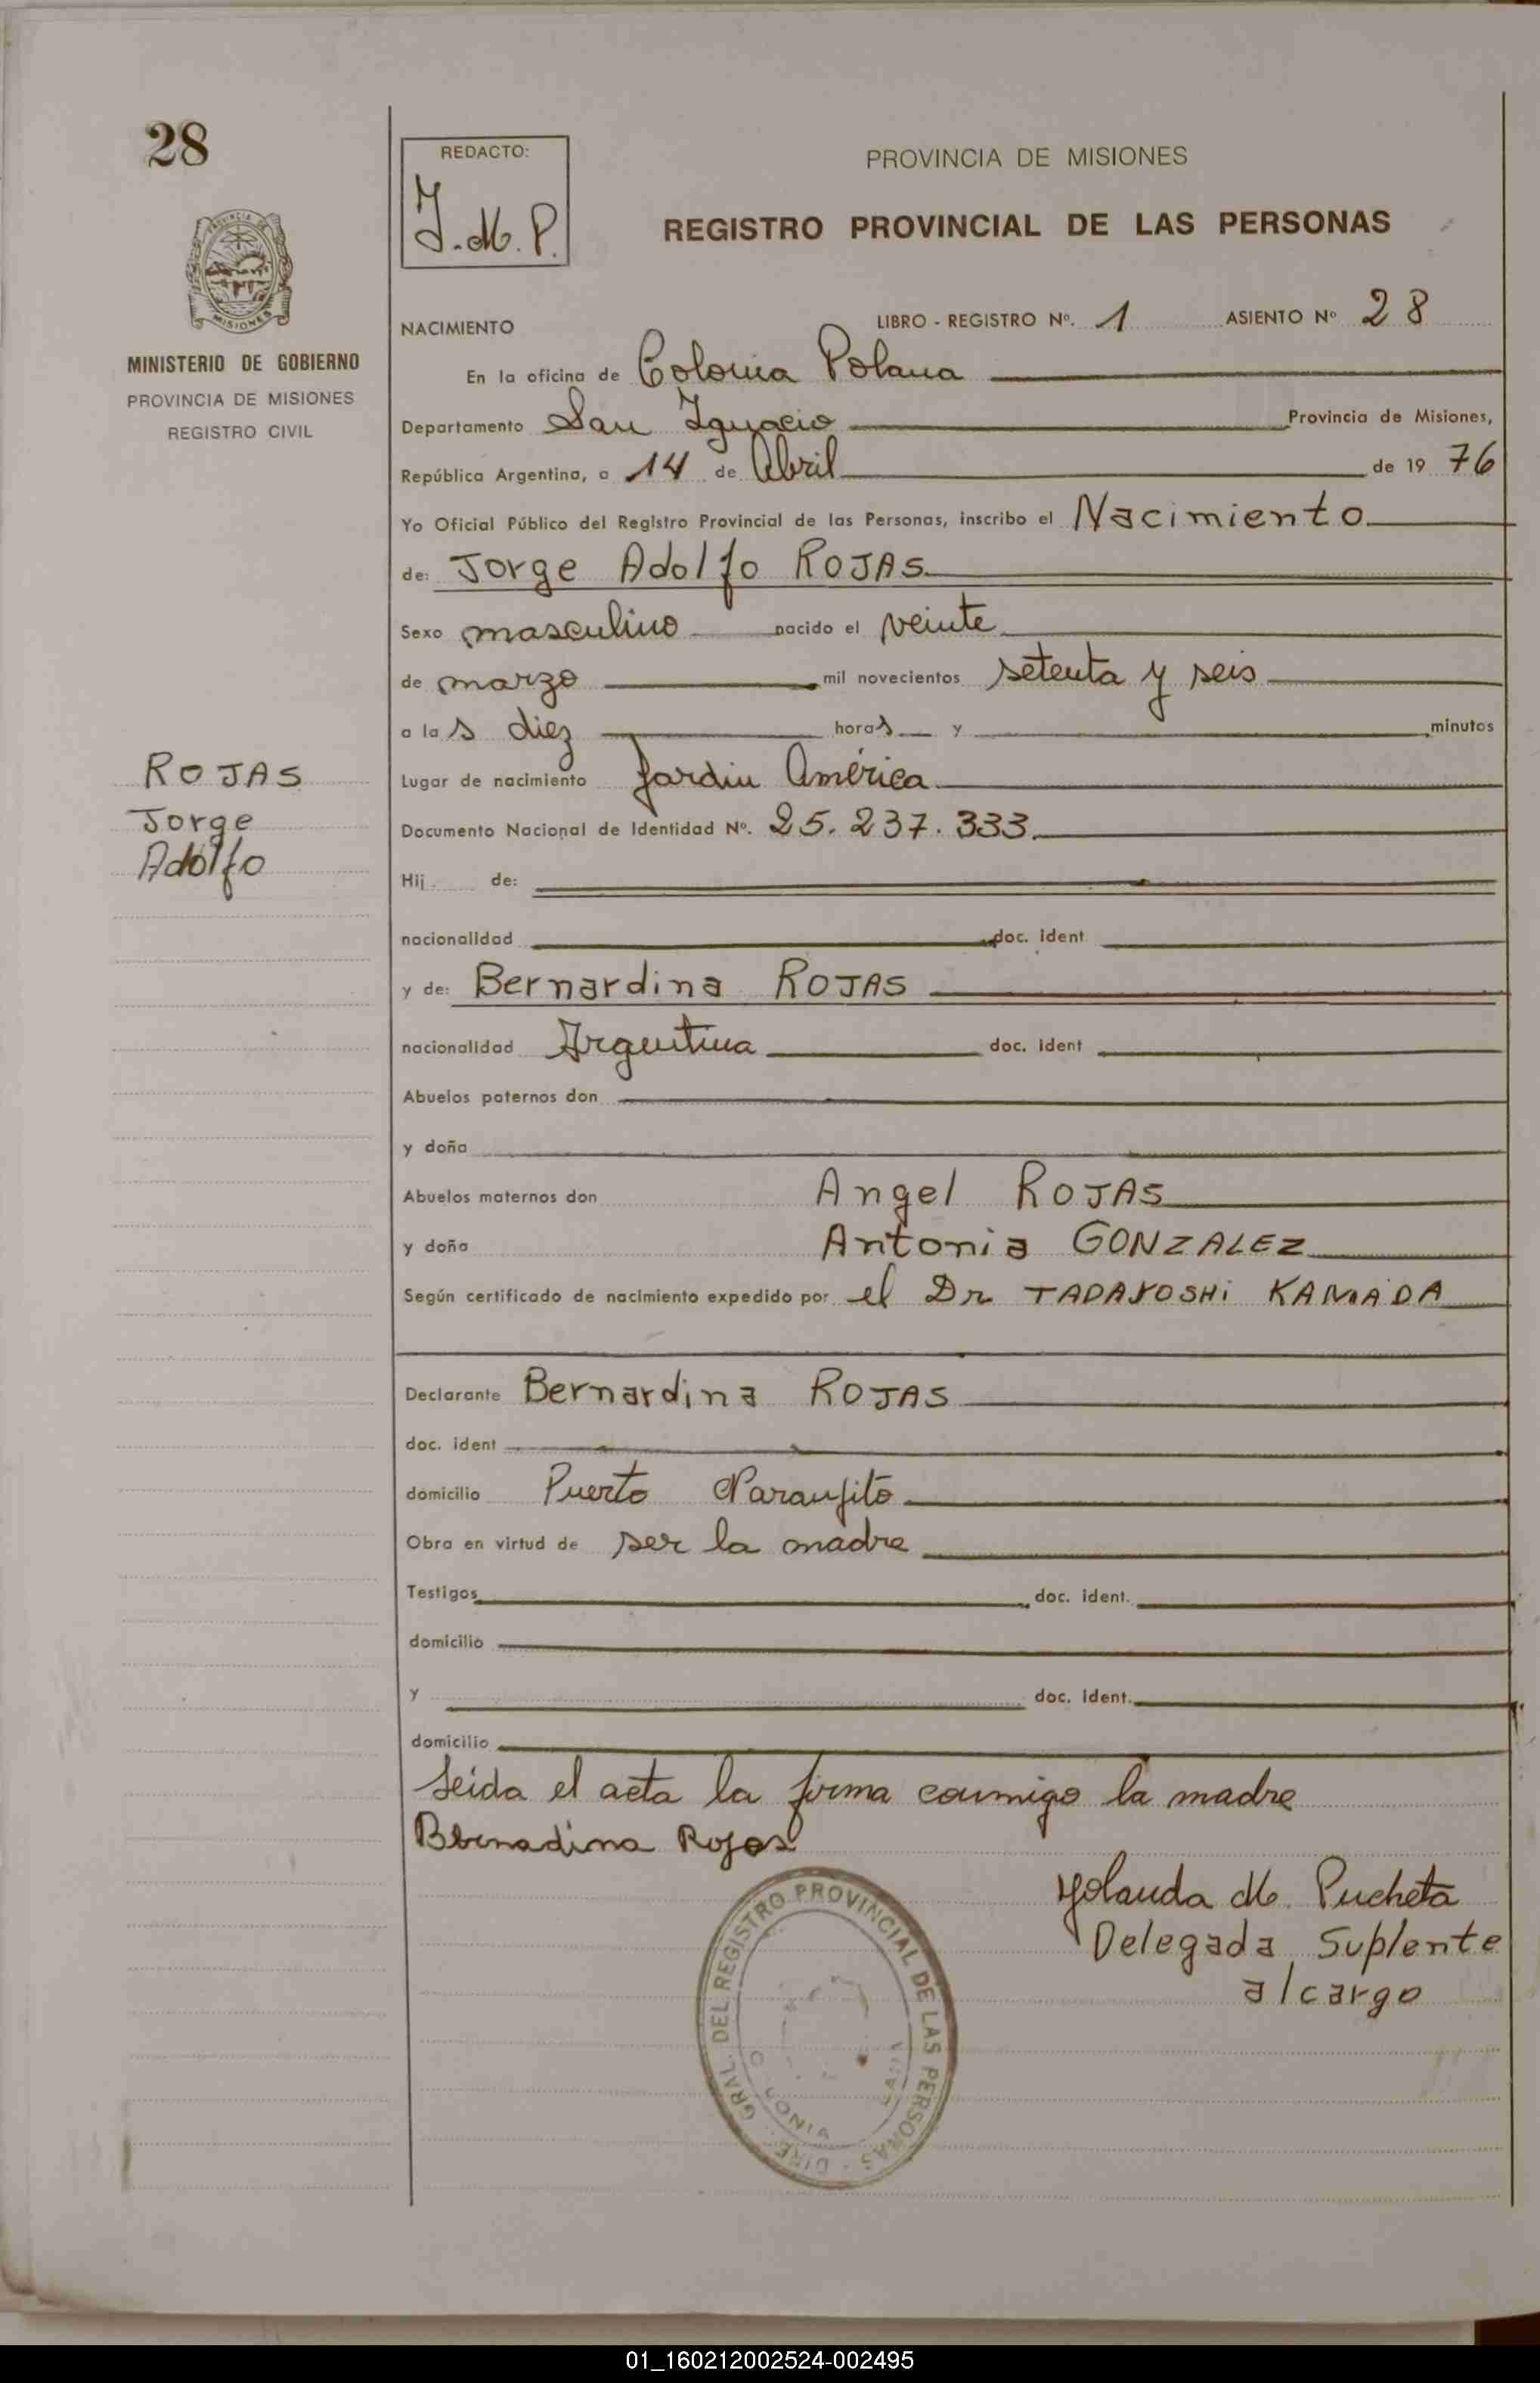 28
REDACTO:
Y. M. P.
PROVINCIA DE MISIONES
REGISTRO PROVINCIAL DE LAS PERSONAS
PROVINCIA DE
MISIONES
MINISTERIO DE GOBIERNO
PROVINCIA DE MISIONES
REGISTRO CIVIL
NACIMIENTO LIBRO - REGISTRO Nº. 1 ASIENTO Nº 28
En la oficina de Colonia Polana
Departamento San Ignacio Provincia de Misiones,
República Argentina, a 14 de Abril de 19 76
Yo Oficial Público del Registro Provincial de las Personas, inscribo el Nacimiento
de: Jorge Adolfo ROJAS
Sexo masculino nacido el veinte
de marzo mil novecientos setenta y seis
a las diez horas y minutos
ROJAS
Jorge
Adolfo
Lugar de nacimiento Jardin América
Documento Nacional de Identidad Nº. 25.237.333
Hij de:
nacionalidad doc. ident
y de: Bernardina ROJAS
nacionalidad Argentina doc. ident
Abuelos paternos don
y doña
Abuelos maternos don Angel ROJAS
y doña Antonia GONZALEZ
Según certificado de nacimiento expedido por el Dr TADAYOSHi KAMADA
Declarante Bernardina ROJAS
doc. ident
domicilio Puerto Naranjito
Obra en virtud de ser la madre
Testigos doc. ident.
domicilio
y doc. ident.
domicilio
Leida el acta la firma conmigo la madre
Bbernadina Rojas
Yolanda M. Pucheta
Delegada Suplente
al cargo
GRAL. DEL REGISTRO PROVINCIAL DE LAS PERSONAS - DIRE
01_160212002524-002495